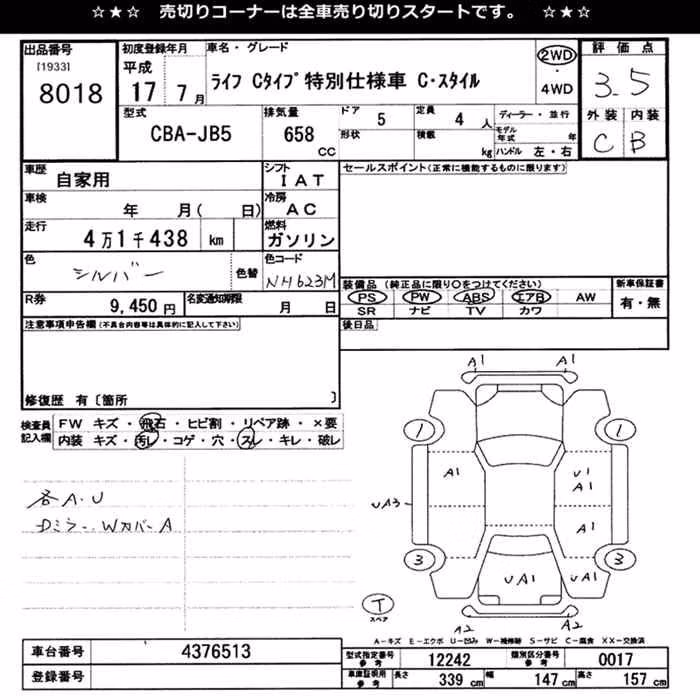 ☆★☆ 売切りコーナーは全車売り切りスタートです。 ☆★☆
出品番号
[1933]
8018
初度登録年月
平成
17 7月
車名・グレード
ライフ Cタイプ特別仕様車 C・スタイル
2WD
・
4WD
評価点
3.5
外装 内装
C B
型式
CBA-JB5
排気量
658
CC
ドア 5
形状
定員 4 人
積載 kg
ディーラー・並行
モデル年式 年
ハンドル 左・右
車歴
自家用
シフト
IAT
セールスポイント(正常に機能するものに限ります)
車検
年 月( 日)
冷房
AC
走行
4万1千438 km
燃料
ガソリン
色
シルバー
色替
色コード
NH623M
装備品 (純正品に限り○をつけてください)
PS PW ABS エアB AW
SR ナビ TV カワ
新車保証書
有・無
R券
9,450円
名変通知期限
月 日
後日品
注意事項申告欄(不具合内容等は具体的に記入して下さい)
修復歴 有〔箇所 〕
検査員記入欄
FW キズ・飛石・ヒビ割・リペア跡・×要
内装 キズ・汚レ・コゲ・穴・スレ・キレ・破レ
各A・U
Dミラー、WカバーA
A1 A1
1 1
A1 U1
A1
UA3 A1
3 3
UA1 UA1
T
スペア
A2 A2
A-キズ E-エクボ U-凹み W-補修跡 S-サビ C-腐食 XX-交換済
車台番号
4376513
登録番号
型式指定番号
参考
12242
類別区分番号
参考
0017
車庫証明用
参考
長さ 339 cm 幅 147 cm 高さ 157 cm